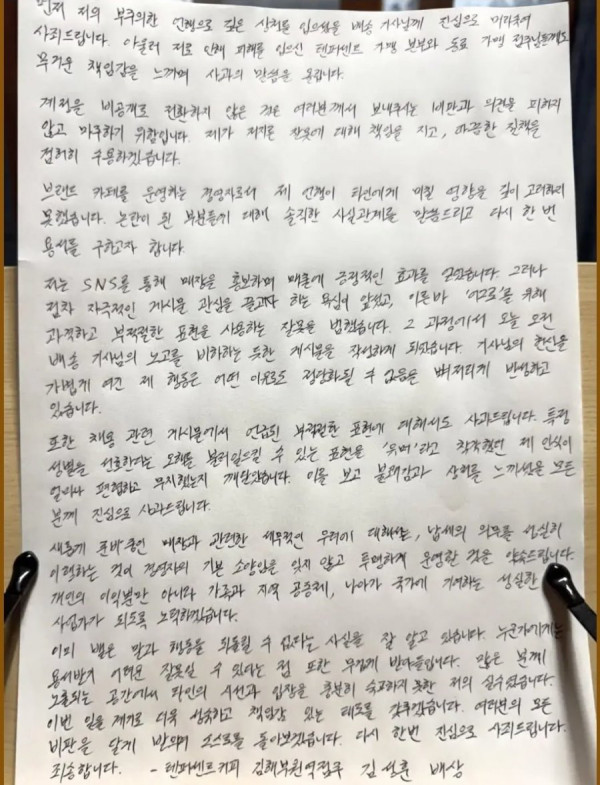 먼저 저의 부주의한 언행으로 깊은 상처를 입으셨을 배송 기사님께 진심으로 머리숙여
사죄드립니다. 아울러 저로 인해 피해를 입으신 텐퍼센트 가맹 본부와 동료 가맹 점주님들께도
무거운 책임감을 느끼며 사과의 말씀을 올립니다.
계정을 비공개로 전환하지 않은 것은 여러분께서 보내주시는 비판과 의견을 피하지
않고 마주하기 위함입니다. 제가 저지른 잘못에 대해 책임을 지고, 따끔한 질책을
겸허히 수용하겠습니다.
브랜드 카페를 운영하는 경영자로서 제 언행이 타인에게 미칠 영향을 깊이 고려하지
못했습니다. 논란이 된 부분들에 대해 솔직한 사실관계를 말씀드리고 다시 한 번
용서를 구하고자 합니다.
저는 SNS를 통해 매장을 홍보하며 매출에 긍정적인 효과를 얻었습니다. 그러나
점차 자극적인 게시물로 관심을 끌고자 하는 욕심이 앞섰고, 이른바 '어그로'를 위해
과격하고 부적절한 표현을 사용하는 잘못을 범했습니다. 그 과정에서 오늘 오전
배송 기사님의 노고를 비하하는 듯한 게시물을 작성하게 되었습니다. 기사님의 헌신을
가볍게 여긴 제 행동은 어떤 이유로도 정당화될 수 없음을 뼈저리게 반성하고
있습니다.
또한 채용 관련 게시물에서 언급된 부적절한 표현에 대해서도 사과드립니다. 특정
성별을 선호한다는 오해를 불러일으킬 수 있는 표현을 '유머'라고 착각했던 제 인식이
얼마나 편협하고 무지했는지 깨달았습니다. 이를 보고 불쾌감과 상처를 느끼셨을 모든
분께 진심으로 사과드립니다.
새롭게 준비 중인 매장과 관련한 세무적인 우려에 대해서는, 납세의 의무를 성실히
이행하는 것이 경영자의 기본 소양임을 잊지 않고 투명하게 운영할 것을 약속드립니다.
개인의 이익뿐만 아니라 가족과 지역 공동체, 나아가 국가에 기여하는 성실한
사업가가 되도록 노력하겠습니다.
이미 뱉은 말과 행동을 되돌릴 수 없다는 사실을 잘 알고 있습니다. 누군가에게는
용서받기 어려운 잘못일 수 있다는 점 또한 무겁게 받아들입니다. 많은 분께
노출되는 공간에서 타인의 시선과 입장을 충분히 숙고하지 못한 저의 실수였습니다.
이번 일을 계기로 더욱 성숙하고 책임감 있는 태도를 갖추겠습니다. 여러분의 모든
비판을 달게 받으며 스스로를 돌아보겠습니다. 다시 한번 진심으로 사죄드립니다.
죄송합니다. - 텐퍼센트커피 김해부원역점주 김설훈 배상